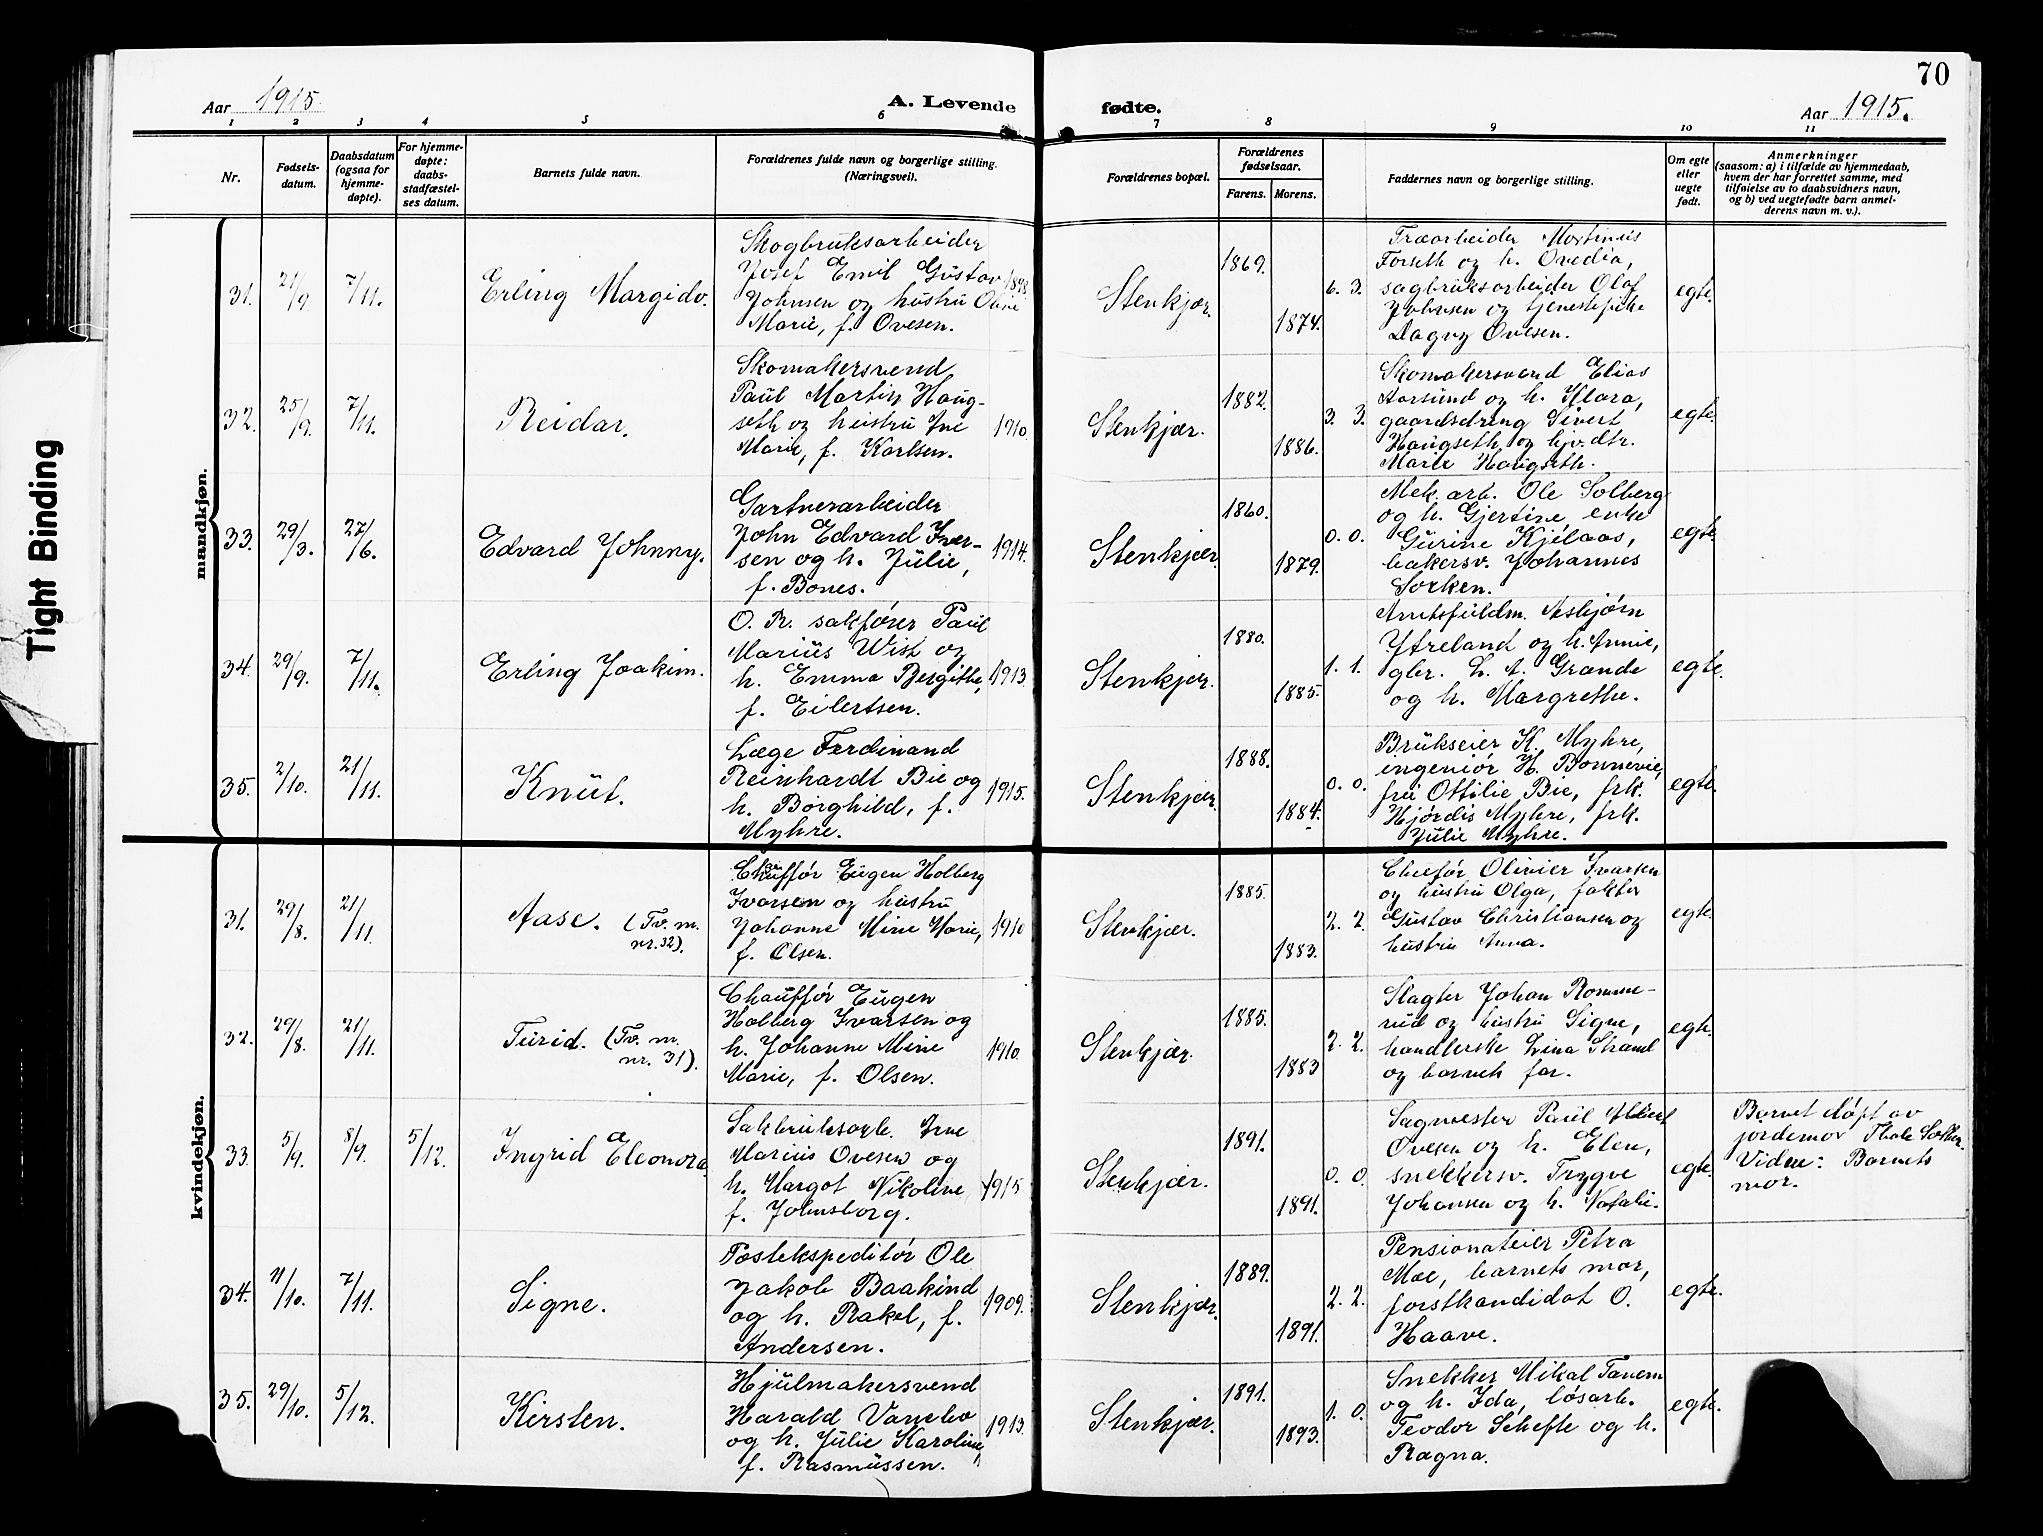 70
Aar 1915. A. Levende fødte. Aar 1915.
1 2 3 4 5 6 7 8 9 10 11
Nr.
Fødsels-
datum.
Daabsdatum
(ogsaa for
hjemme-
døpte).
For hjemme-
døpte:
daabs-
stadfæstel-
ses datum.
Barnets fulde navn.
Forældrenes fulde navn og borgerlige stilling.
(Næringsvei).
Forældrenes bopæl.
Forældrenes
fødselsaar.
Farens. Morens.
Faddernes navn og borgerlige stilling.
Om egte
eller
uegte
født.
Anmerkninger
(saasom: a) i tilfælde av hjemmedaab,
hvem der har forrettet samme, med
tilføielse av to daabsvidners navn,
og b) ved uegtefødte barn anmel-
derens navn m. v.).
Tight Binding
mandkjøn.
31. 21/9. 7/11. Erling Margido.
Skogbruksarbeider
Josef Emil Gustav 1898
Johnsen og hustru Oline
Marie, f. Ovesen.
Stenkjær. 1869. 1874. 6. 3.
Træarbeider Martinus
Forseth og h. Ovedia,
sagbruksarbeider Olaf
Johnsen og tjenestepike
Dagny Ovesen.
egte.
32. 25/9. 7/11. Reidar.
Skomakersvend
Paul Martin Haug-
seth og hustru Ine 1910.
Marie, f. Karlsen.
Stenkjær. 1882. 1886. 3. 3.
Skomakersvend Elias
Aarsund og h. Klara,
gaardsdreng Sivert
Haugseth og hjv. dtr.
Marie Haugseth.
egte.
33. 29/3. 27/6. Edvard Johnny.
Gartnerarbeider
John Edvard Iver- 1914.
sen og h. Julie,
f. Bones.
Stenkjær. 1860. 1879. 0. 0.
Mek. arb. Ole Solberg
og h. Gjertine, enke
Gurine Kjelaas,
bakersv. Johannes
Sorken.
egte.
34. 29/9. 7/11. Erling Joakim.
O. R. sakfører Paul
Marius Wist og
h. Emma Bergithe, 1913.
f. Eilertsen.
Stenkjær. 1880. 1885. 1. 1.
Amtsfuldm. Asbjørn
Ytreland og h. Annie,
gbr. L. A. Grande
og h. Margrethe.
egte.
35. 2/10. 21/11. Knut.
Læge Ferdinand
Reinhardt Bie og
h. Borghild, f. 1915.
Myhre.
Stenkjær. 1888. 1884. 0. 0.
Brukseier K. Myhre,
ingeniør H. Bonnevie,
fru Ottilie Bie, frk.
Hjørdis Myhre, frk.
Julie Myhre.
egte.
kvindekjøn.
31. 29/8. 21/11. Aase. (Tv. m.
nr. 32).
Chauffør Eugen Holberg
Ivarsen og hustru
Johanne Mine Marie, 1910
f. Olsen.
Stenkjær. 1885. 1883. 2. 2.
Olivier Ivarsen
og hustru Olga, faktor
Gustav Christiansen og
hustru Anna.
egte.
32. 29/8. 21/11. Turid. (Tv. m.
nr. 31).
Chauffør Eugen
Holberg Ivarsen og
h. Johanne Mine 1910.
Marie, f. Olsen.
Stenkjær. 1885. 1883 2. 2.
Slagter Johan Romme-
rud og hustru Signe,
handlerske Lina Strand
og barnets far.
egte.
33. 5/9. 8/9. 5/12. Ingrid Eleonora.
Sakbruksarb. Arne
Marius Ovesen og
h. Margot Nikoline, 1915
f. Johnsborg.
Stenkjær. 1891. 1891. 0. 0.
Sagmester Paul Albert
Ovesen og h. Elen,
snekkersv. Trygve
Johansen og h. Natalie.
egte.
Barnet døpt av
jordemor
Vidne: Barnets
mor.
34. 11/10. 7/11. Signe.
Postekspeditør Ole
Jakob Baakind 1909.
og h. Rakel, f.
Andersen.
Stenkjær. 1889. 1891. 2. 2.
Pensionateier Petra
Moe, barnets mor,
forstkandidat O.
Haave.
egte.
35. 29/10. 5/12. Kirsten.
Hjulmakersvend
Harald Vanebo 1913.
og h. Julie Karoline,
f. Rasmussen.
Stenkjær. 1891. 1893. 1. 0.
Snekker Mikal Tanem
og h. Ida, løsarb.
Teodor Schefte og h.
Ragna.
egte.